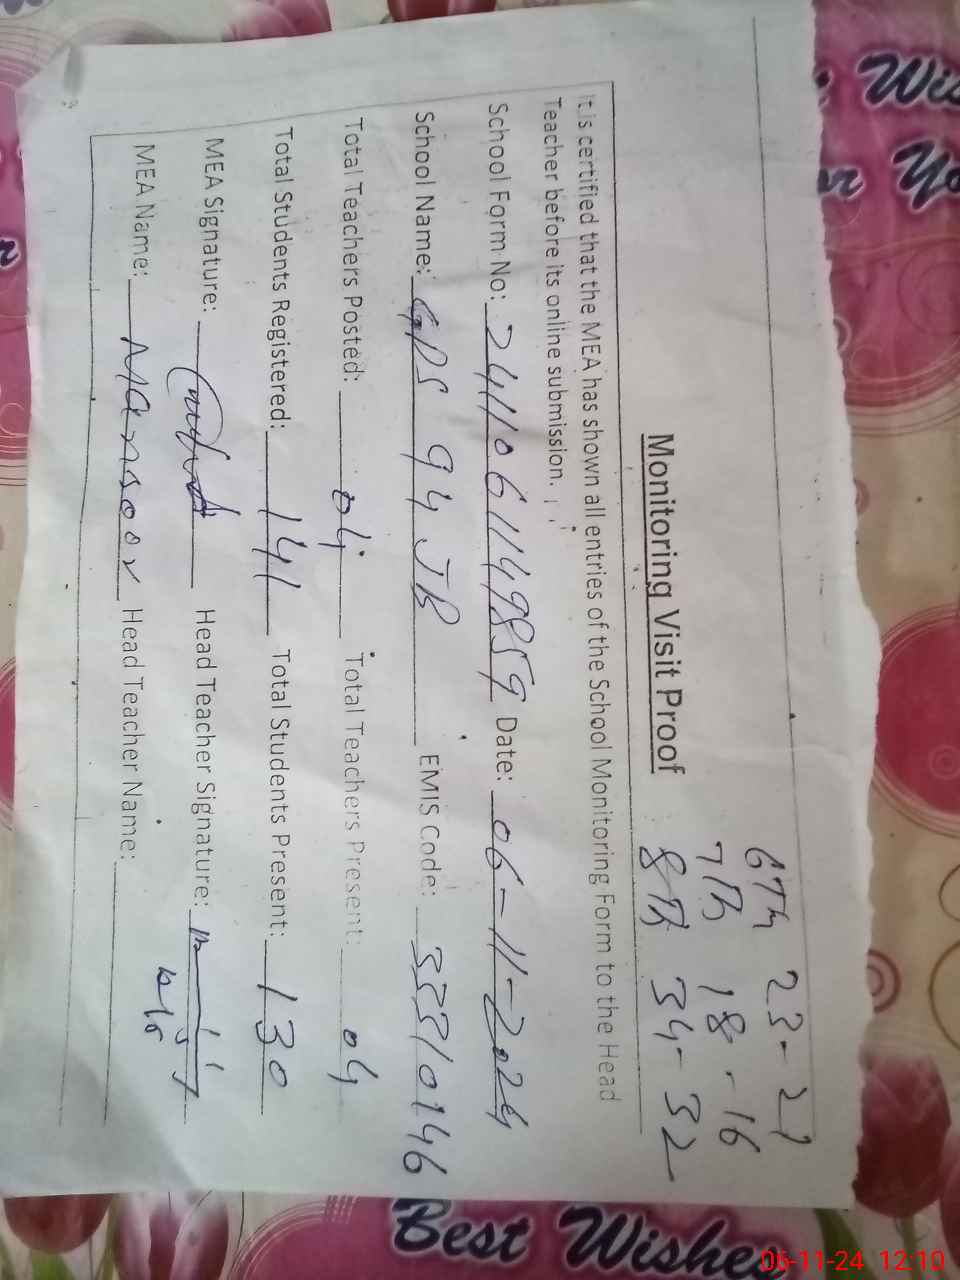 6Th 23-21
7Th 18-16
8Th 34-32
Monitoring Visit Proof
It is certified that the MEA has shown all entries of the School Monitoring Form to the Head
Teacher before its online submission.
School Form No: 2411061149859 Date: 06-11-2024
School Name: GPS 94 JB EMIS Code: 33310146
Total Teachers Posted: 04 Total Teachers Present: 04
Total Students Registered: 141 Total Students Present: 130
MEA Signature: Head Teacher Signature:
MEA Name: Mansoor Head Teacher Name:
Best Wishes
06-11-24 12:10